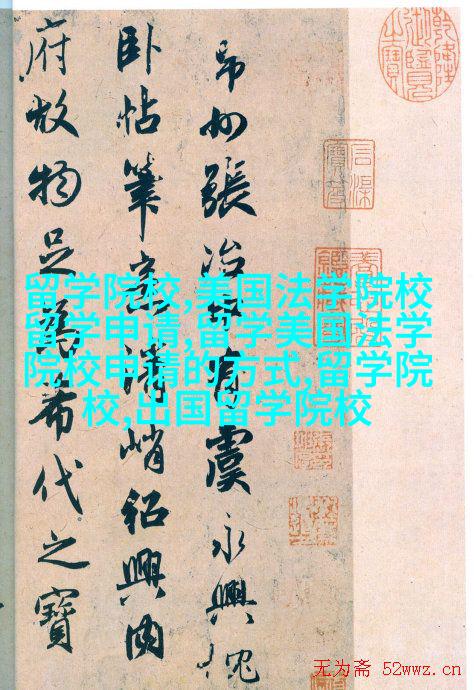 張虞永興
卧帖筆意瀟峭紹興内
府故物足為希代之寶
乾隆御覽之寶
留学院校,美国法学院校
留学申请,留学美国法学
院校申请的方式,留学院
校,出国留学院校
无为斋 52wwz.cn